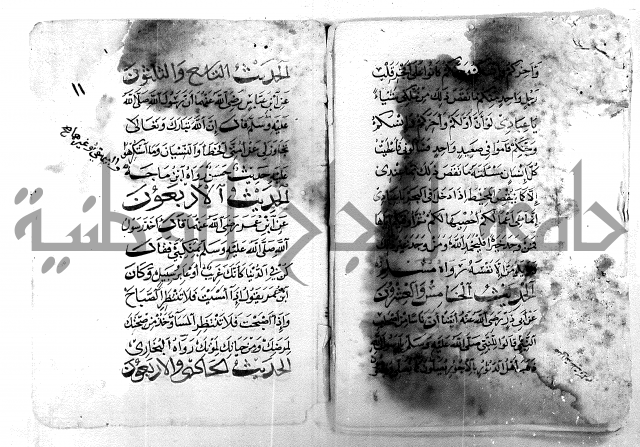 واخركم كانوا على افجر قلب
رجل واحد منكم ما نقص ذلك من ملكي شيئا
يا عبادي لو ان اولكم واخركم وانسكم
وجنكم قاموا في صعيد واحد فاعطيت
كل انسان مسألته ما نقص ذلك مما عندي
الا كما ينقص المخيط اذا دخل البحر
انما هي اعمالكم احصيها لكم ثم
فمن وجد خيرا فليحمد الله ومن وجد
الا نفسه رواه مسلم
الحديث الخامس والعشرون
عن ابي ذر رضي الله عنه ايضا ان ناسا من
قالوا للنبي صلى الله عليه وسلم
اهل الدثور بالاجور يصلون
١١
الحديث التاسع والثلثون
عن ابن عباس رضي الله عنهما ان رسول الله صلى الله
عليه وسلم قال ان الله تبارك وتعالى
تجاوز لي عن امتي الخطا والنسيان وما استكرهوا
عليه حديث حسن رواه ابن ماجة
الحديث الاربعون
عن ابن عمر رضي الله عنهما قال اخذ رسول
الله صلى الله عليه وسلم بمنكبي فقال
كن في الدنيا كانك غريب او عابر سبيل وكان
ابن عمر يقول اذا امسيت فلا تنتظر الصباح
واذا اصبحت فلا تنتظر المسا وخذ من صحتك
لمرضك ومن حياتك لموتك رواه البخاري
الحديث الحادي والاربعون
جامعة النجاح الوطنية